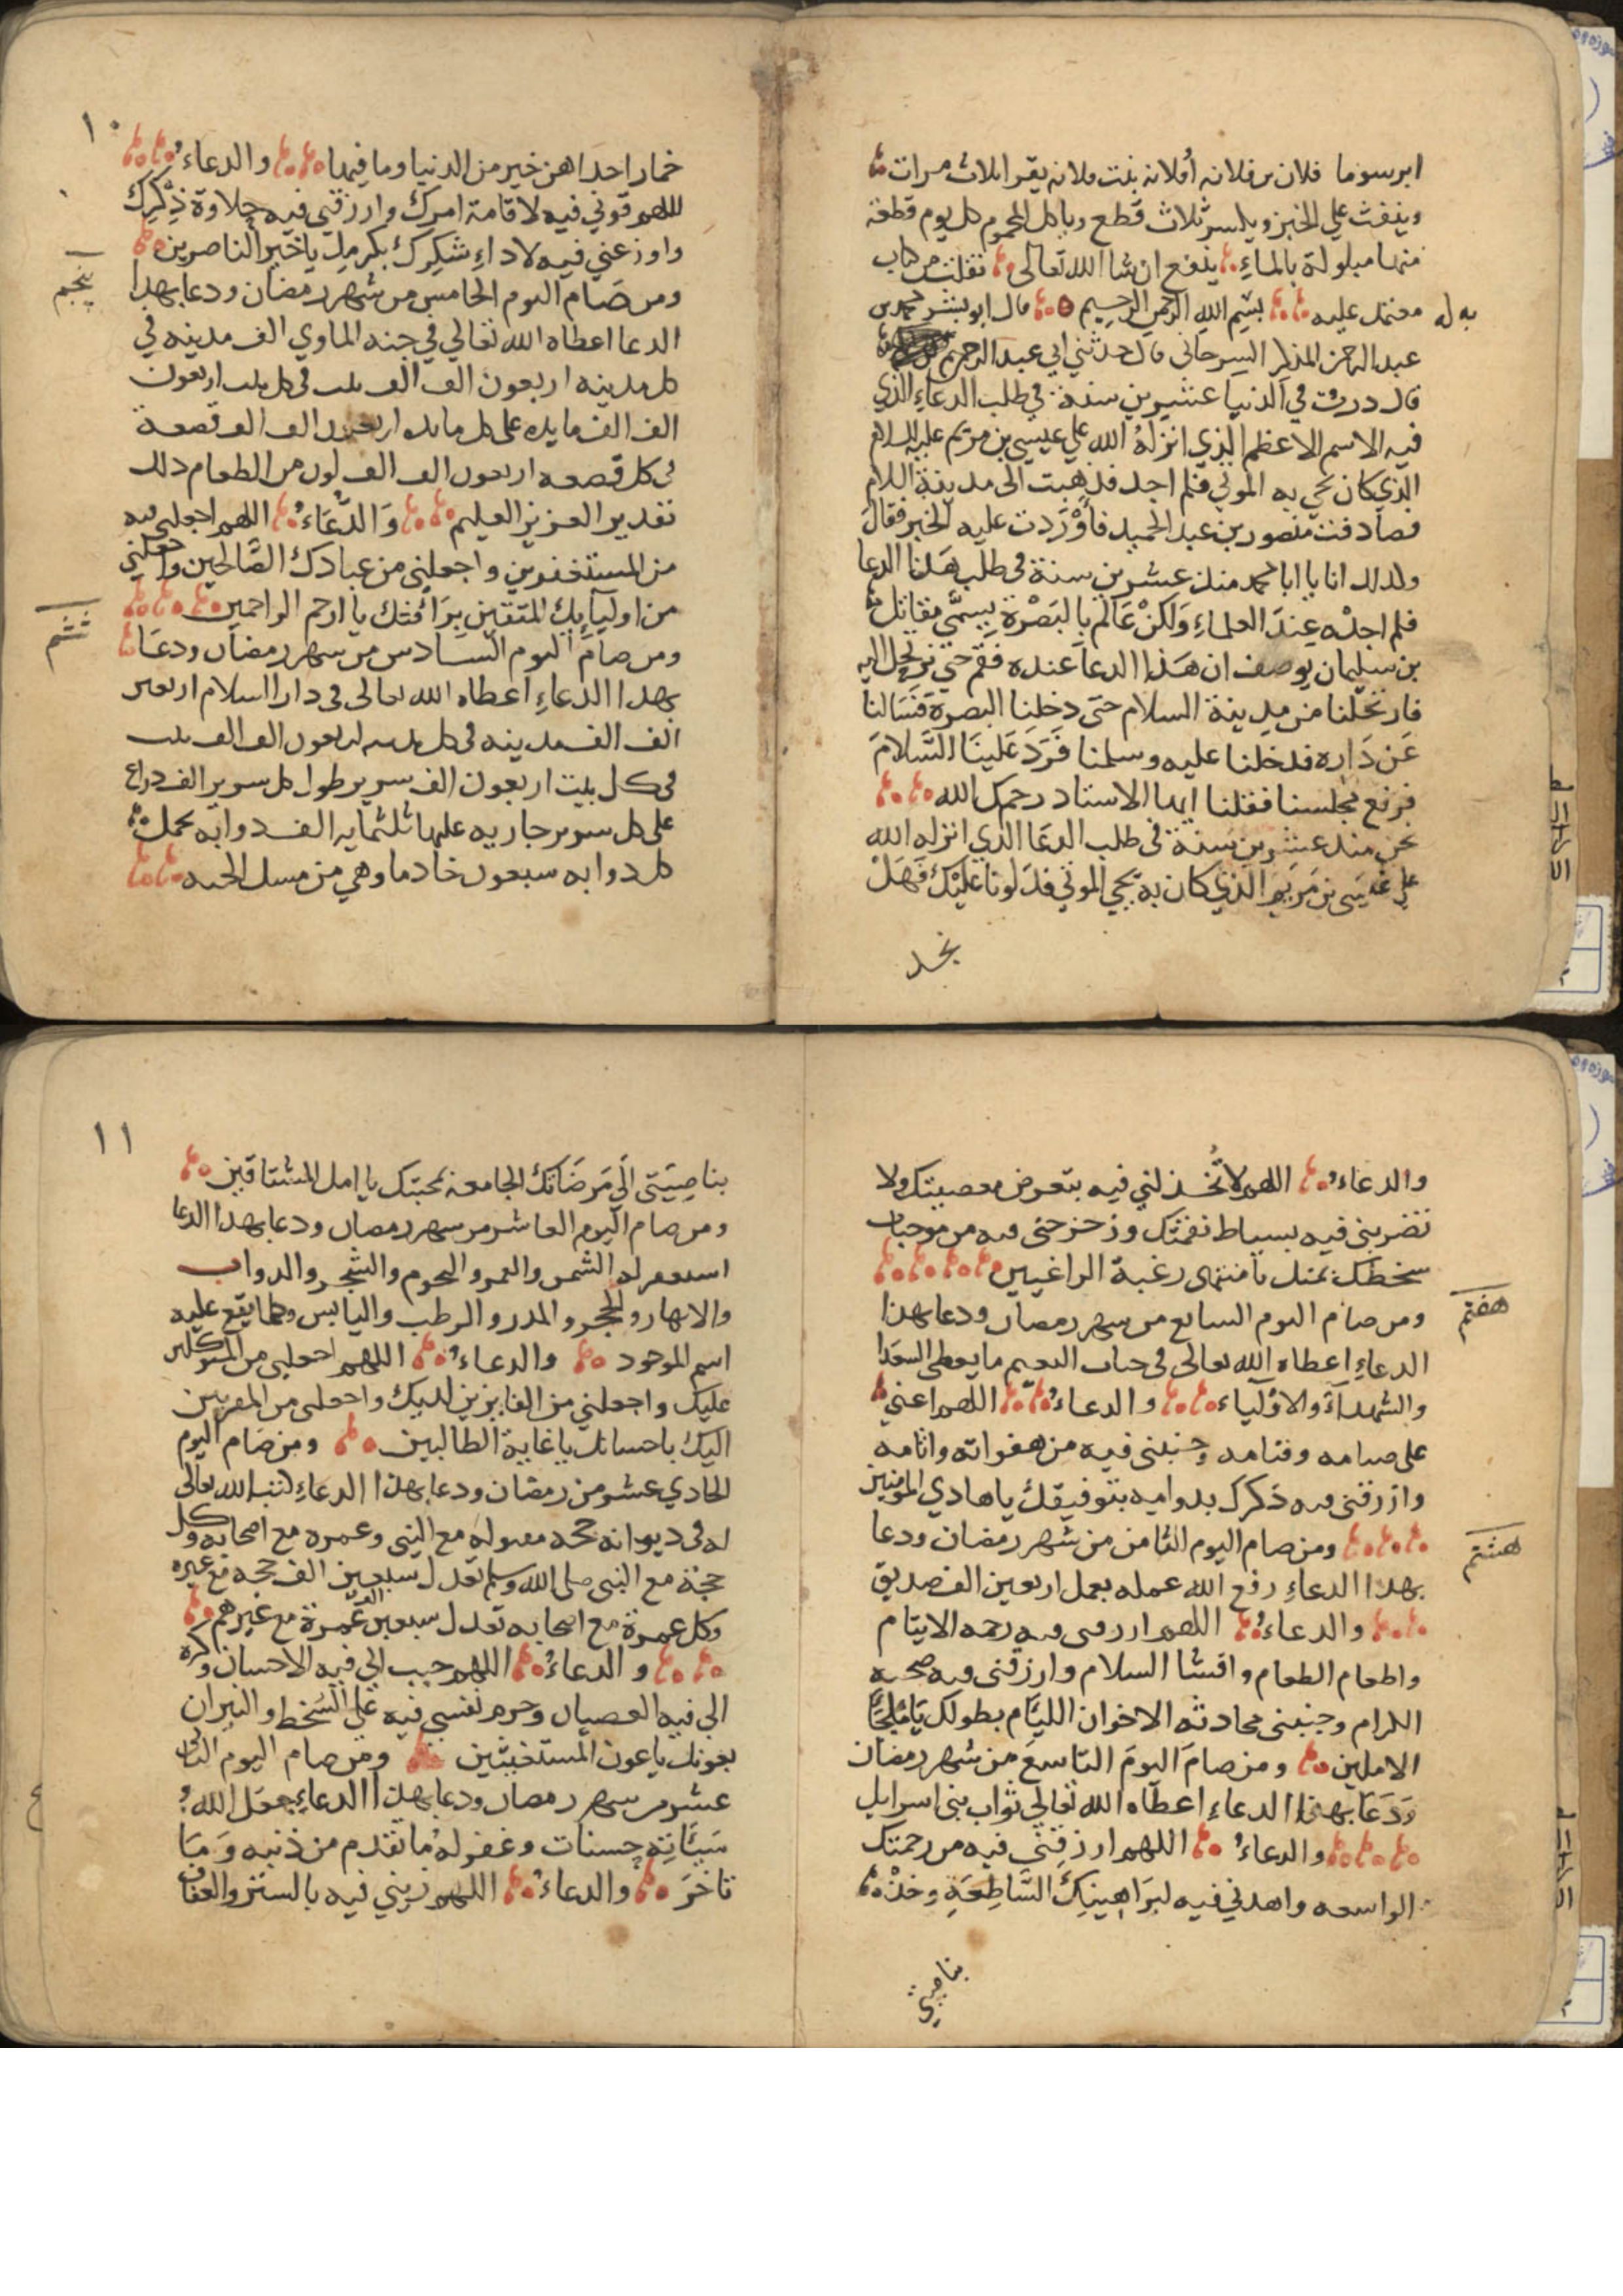 ابرسوما فلان بن فلانه أو فلانه بنت فلانه يقرا ثلاث مرات
وينفث علي الخبز ويكسر ثلاث قطع وياكل المحموم كل يوم قطعة
منها مبلولة بالماءِ ينفع ان شا الله تعالى نقلت من كتاب
معتمد عليه بسم الله الرحمن الرحيم قال ابو بشر محمد بن
عبد الرحمن المذكر السرجانى قال حدثني ابي عبد الرحمن
قال درت في الدنيا عشرين سنة في طلب الدعاءِ الذي
فيه الاسم الاعظم الذي انزله الله علي عيسى بن مريم عليه السلام
الذي كان يحي به الموتي فلم اجد فذهبت الى مدينة السلام
فصادفت منصور بن عبد الحميد فأوْرَدت عليه الخبر فقال
ولذلك انا يا ابا محمد منذ عشرين سنة في طلب هذا الدعا
فلم اجده عِندَ العلماءِ وَلكنْ عَالم بالبَصْرة يسمَّى مقاتل
بن سليمان يوصف ان هَذا الدعآ عنده فقم حتي نرتحل اليه
فارتحلنا من مدينة السلام حتى دخلنا البصرة فَسَالنا
عَن دَاره فدخلنا عليه وسلمنا فَرَدَ عَلَينَا السَّلامَ
فرفع مجلسنا فقلنا ايها الاستاد رحمك الله
نحن منذ عشرين سنة في طلب الدعَا الذي انزله الله
علي عيسَى بن مَريم الذي كان به يحي الموتي فدَلونا عليْكَ فَهَلْ
نجد
١٠
خمار احداهن خير من الدنيا وما فيها والدعاءُ
اللهم قوني فيه لاقامة امرك وارزقني فيه حلاوة ذِكْرِكَ
واوزعني فيه لاداءِ شكرك بكرمك يا خير الناصرين
پنجم
ومن صَام اليوم الخامس من شهر رمضان ودعا بهذا
الدعا اعطاه الله تعالي في جنه الماوي الف مدينه في
كل مدينه اربعون الف الف بيت في كل بيت اربعون
الف الف مايده على كل مايده اربعون الف الف قصعة
في كل قصعه اربعون الف الف لون من الطعام ذلك
تقدير العزيز العليم وَالدُّعَاءُ اللهم اجعلني فيه
من المستغفرين واجعلني من عبادك الصَّالحين واجعلني
من اوليآيِكَ المتقين بِرَأفتك يا ارحم الراحمين
ششم
ومن صَام اليوم السادس من شهر رمضان ودعَا
بهذا الدعاءِ اعطاه الله تعالى في دار السلام اربعين
الف الف مدينه في كل مدينه اربعون الف الف بيت
في كل بيت اربعون الف سرير طول كل سرير الف ذراع
على كل سرير جاريه عليها ثلثمايه الف دوابه يحمل
كل دوابه سبعون خادما وهي من مسك الجنه
والدعاءُ اللهم لا تُخذلني فيه بتعرض معصيتك ولا
تضربني فيه بسياط نقمتك وزحزحني فيه من موجبات
سخطك بمنك يا منتهى رغبة الراغبين
هفتم
ومن صام اليوم السابع من شهر رمضان ودعا بهذا
الدعاءِ اعطاه الله تعالى في جنات النعيم ما يعطى السعَدا
والشهدآءَ والاوْليآء والدعاءُ اللهم اعني
على صيامه وقيامه وجنبنى فيه من هفواته واثامه
وارزقنى فيه ذكرك بدوامه بتوفيقك يا هادي المؤمنين
هشتم
ومن صام اليوم الثامن من شهر رمضان ودعا
بهذا الدعاءِ رفع الله عمله بعمل اربعين الف صديق
والدعاءُ اللهم ارزقنى فيه رحمه الايتام
واطعام الطعام وافشا السلام وارزقنى فيه صحبه
الكرام وجنبنى محادثه الاخوان الليَام بطولك يَا ملجَأ
الاملين ومن صامَ اليومَ التاسعَ من شهر رمضان
وَدَعَا بهذا الدعاءِ اعطاه الله تعالي ثواب بنى اسرايل
والدعاءُ اللهم ارزقني فيه من رحمتك
الواسعه واهدني فيه لبرَاهِينِكَ السَّاطِعَةِ وخذْ
بناصيتي
١١
بناصِيَتى إلَي مَرضَاتكَ الجامعة بمحبتك يا امل المشتاقين
ومن صام اليوم العاشر من شهر رمضان ودعا بهذا الدعا
استغفر له الشمس والقمر والنجوم والشجر والدواب
والانهار والحجر والمدر والرطب واليابس وكلما يقع عليه
اسم الموجود والدعاءُ اللهم اجعلني من المتوكلين
عليك واجعلني من الفايزين لديك واجعلني من المقربين
اليك باحسانك يا غاية الطالبين ومن صَام اليوم
الحادي عشر من رمضان ودعا بهذا الدعاءِ كتب الله تعالى
له في ديوانه حجه مقبوله مع النبي وعمره مع اصحابه وكل
حجة مع النبى صلى الله وسلم تعدل سبعين الف حجه مع غيره
وكل عمرة مع اصحابه تعدل سبعين الف عمرة مع غيرهم
والدعاءُ اللهم حبب الي فيه الاحسان وكره
الي فيه العصيان وحرم نفسي فيه على السُّخط والنيران
بعونك يا عون المستغيثين ومن صام اليوم الثاني
عشر من شهر رمضان ودعا بهذا الدعاءِ جعَل الله
سَيئَاتِه حسنات وغفر لهُ ما تقدم من ذنبه وَمَا
تاخرَ والدعاءُ اللهم زيني فيه بالستر والعفاف